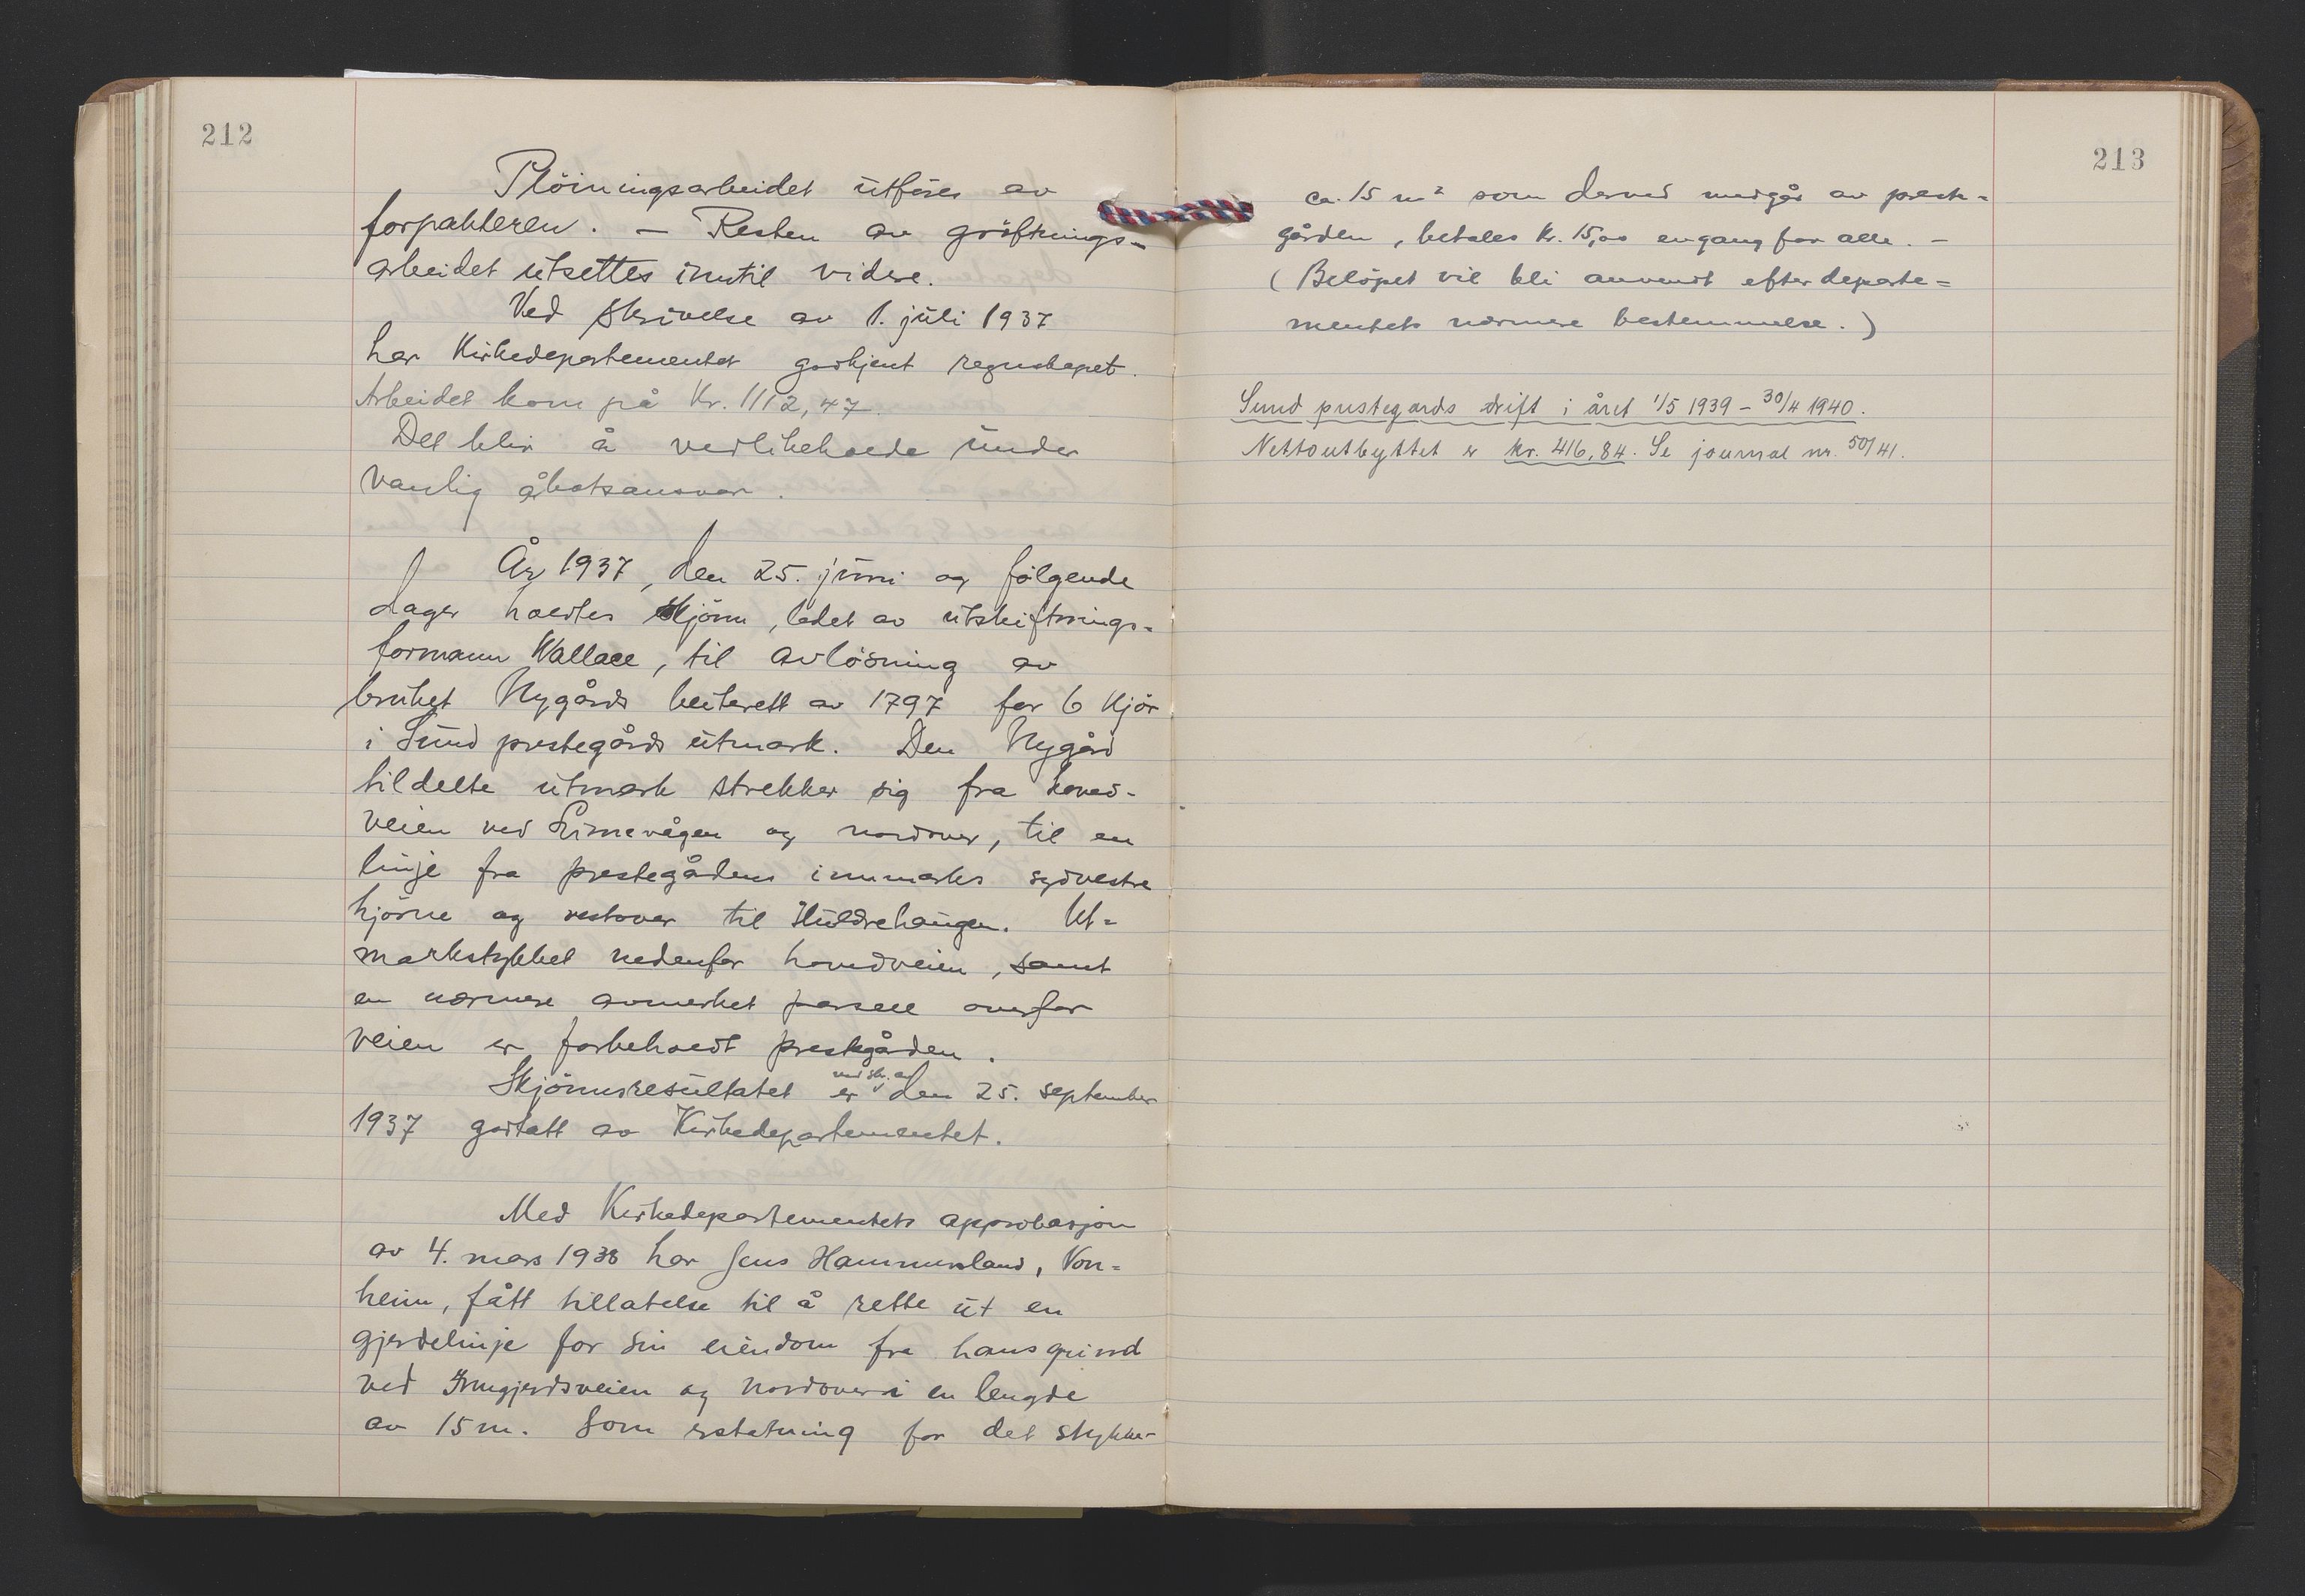 212
Plöiningsarbeidet utföres av
forpakteren. — Resten av gröftnings-
arbeidet utsettes inntil videre.
Ved skrivelse av 1. juli 1937
har Kirkedepartementet godkjent regnskapet.
Arbeidet kom på Kr. 1112,47.
Det blir å vedlikeholde under
vanlig åbotsansvar.
År 1937, den 25. juni og fölgende
dager holdtes skjönn, ledet av utskiftnings-
formann Wallace, til avlösning av
bruket Nygårds beiterett av 1797 for 6 kjör
i Sund prestegårds utmark. Den Nygård
tildelte utmark strekker sig fra hoved-
veien ved Limevågen og nordover, til en
linje fra prestegårdens innmarks sydvestre
hjörne og vestover til Huldrehaugen. Ut=
markstykket nedenfor hovedveien, samt
en nærmere avmerket parsell ovenfor
veien er forbeholdt prestegården.
Skjönnsresultatet er ved skr. av den 25. september
1937 godtatt av Kirkedepartementet.
Med Kirkedepartementets approbasjon
av 4. mars 1938 har Jens Hammersland, Von=
heim, fått tillatelse til å rette ut en
gjerdelinje for sin eiendom fra hans grind
ved Inngjerdsveien og nordover i en lengde
av 15 m. Som erstatning for det stykke
213
ca. 15 m² som derved medgår av preste=
gården, betales kr. 15,00 engang for alle. —
(Belöpet vil bli anvendt efter departe=
mentets nærmere bestemmelse.)
Sund prestegards drift i året 1/5 1939 – 30/4 1940.
Nettoutbyttet er kr. 416,84. Se journal nr. 50/41.